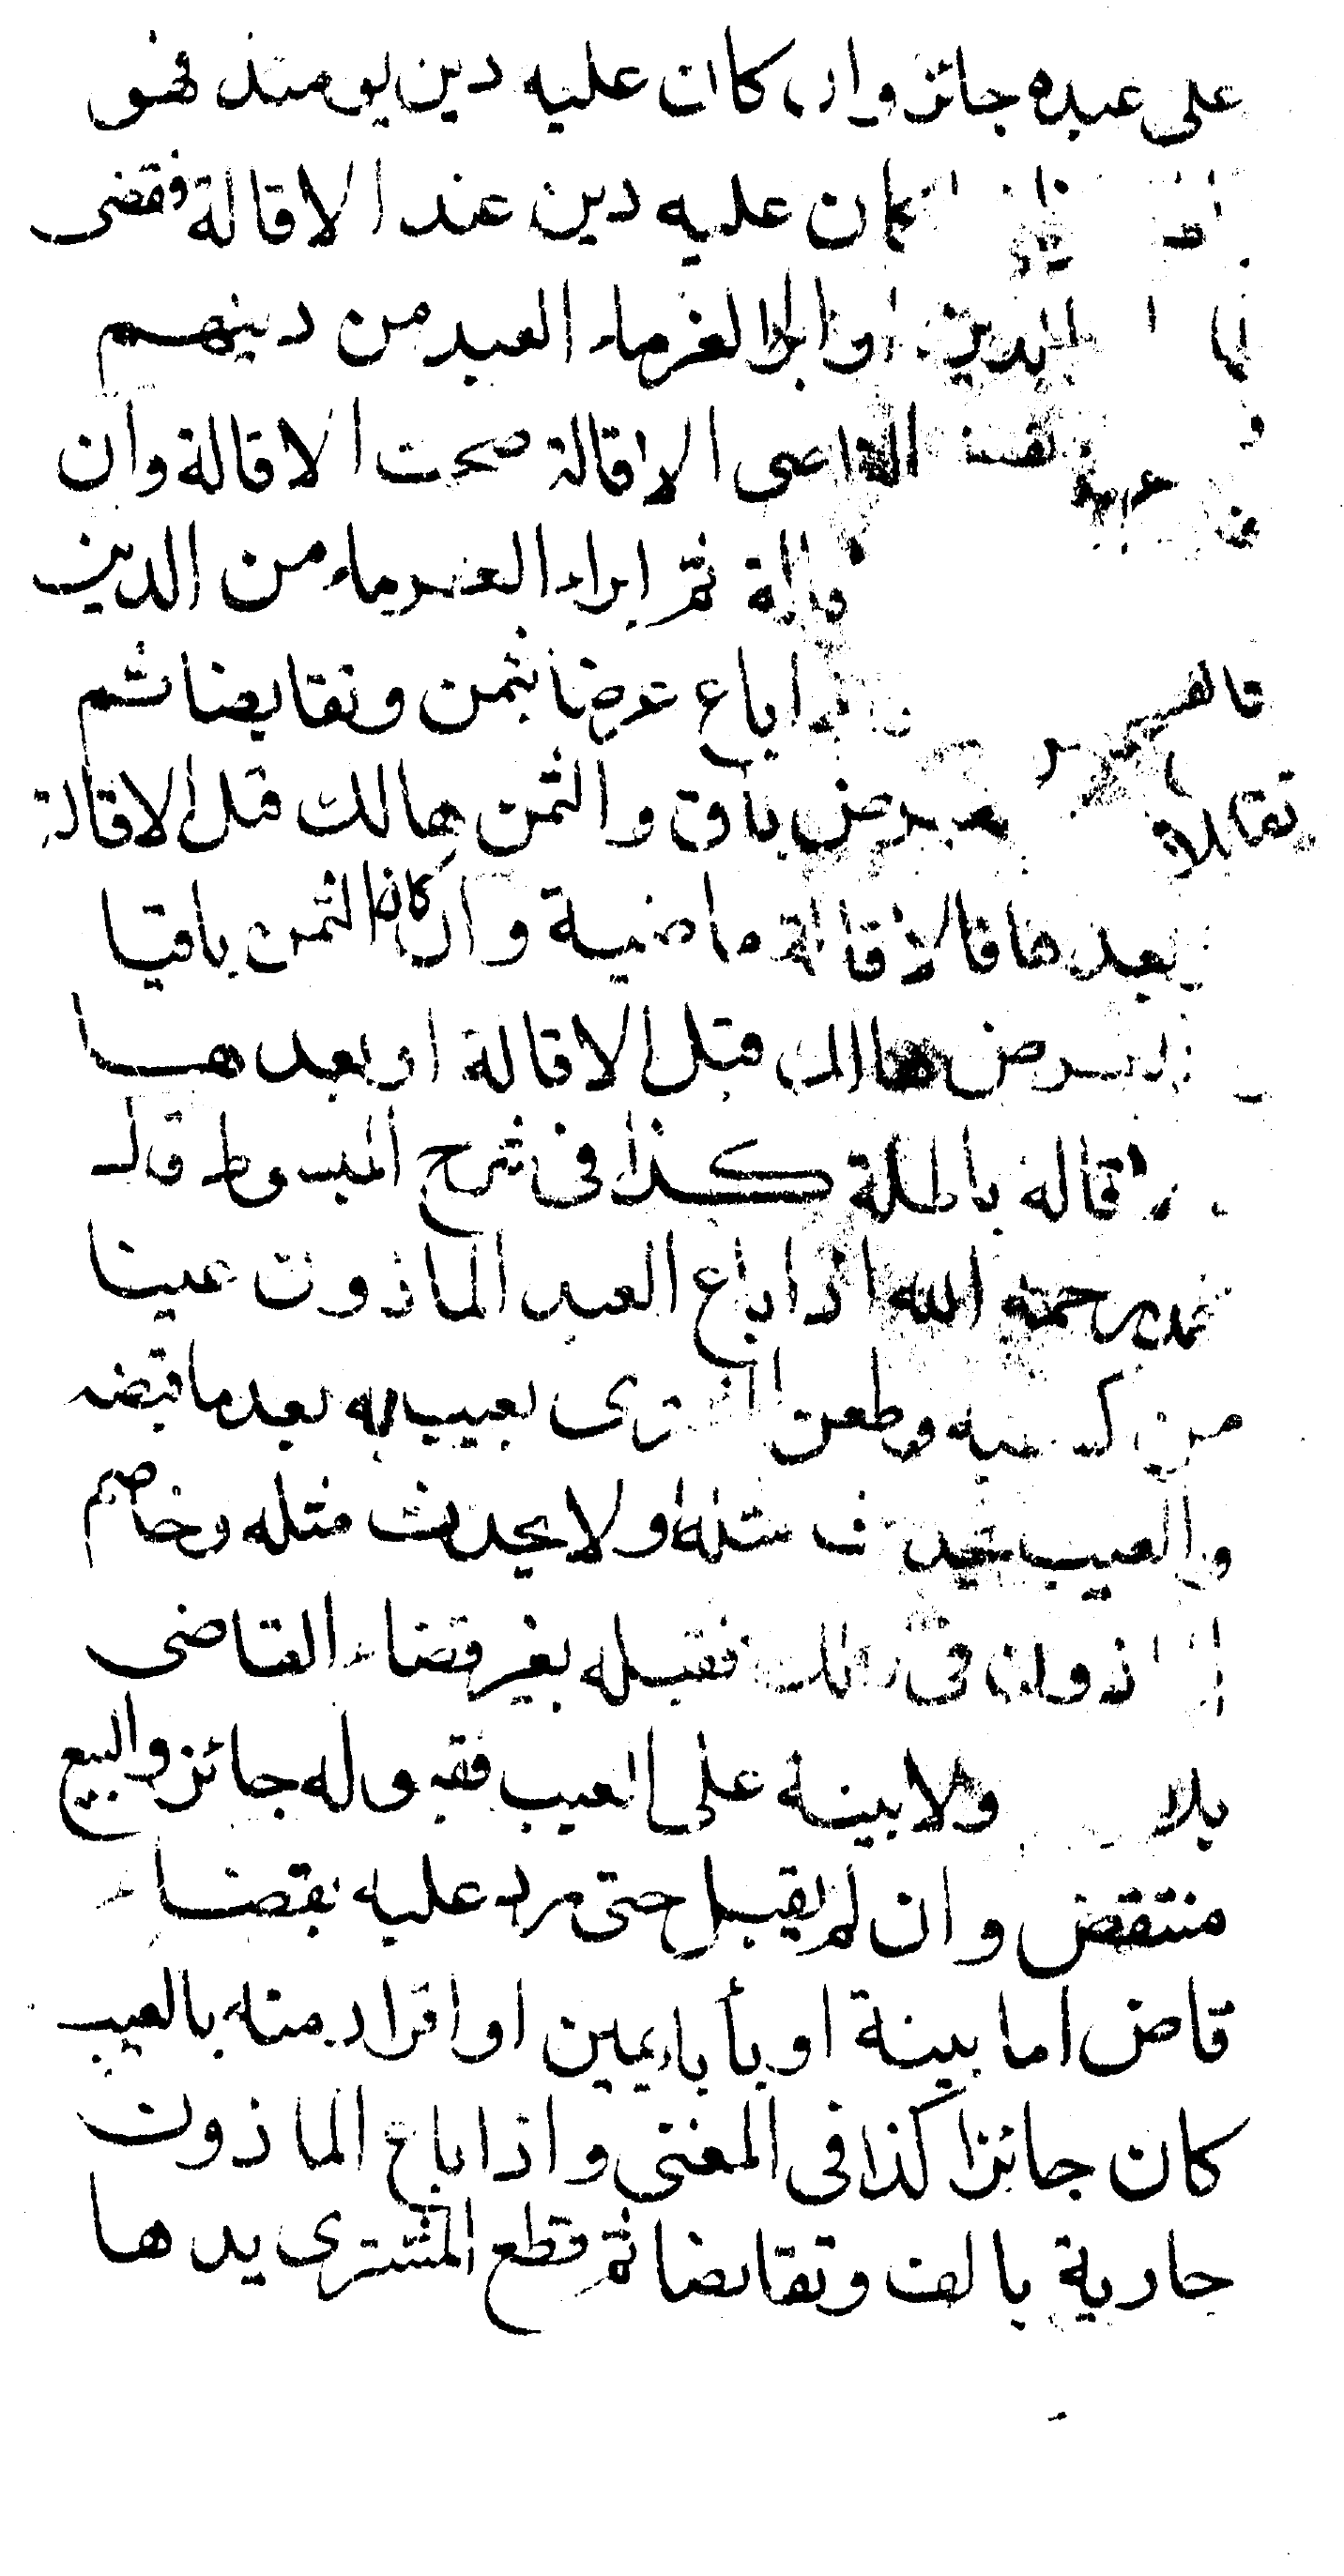 على عبده جائز وان كان عليه دين يومئذ فهو
كان عليه دين عند الاقالة فقضى
الدين او ابرا الغرماء العبد من دينهم
القاضى الاقالة صحت الاقالة وان
قالة ثم ابراء الغرماء من الدين
باع عرضا بثمن وتقابضا ثم
تقايلا العرض باق والثمن هالك قبل الاقالة
بعدها فالاقالة ماضية وان كان الثمن باقيا
العرض هالك قبل الاقالة او بعدها
الاقالة باطلة كذا فى شرح المبسوط قال
محمد رحمه الله اذا باع العبد الماذون عينا
من كسبه وطعن المشترى بعيب به بعد ما قبضه
والعيب يحدث مثله ولا يحدث مثله وخاصم
الماذون فى ذلك فقبله بغير قضاء القاضى
بلا ولا بينة على العيب فقبوله جائز والبيع
منتقض وان لم يقبل حتى رد عليه بقضاء
قاض اما ببينة او بأباء يمين او اقرار منه بالعيب
كان جائزا كذا فى المغنى واذا باع الماذون
جارية بالف وتقابضا ثم قطع المشترى يدها